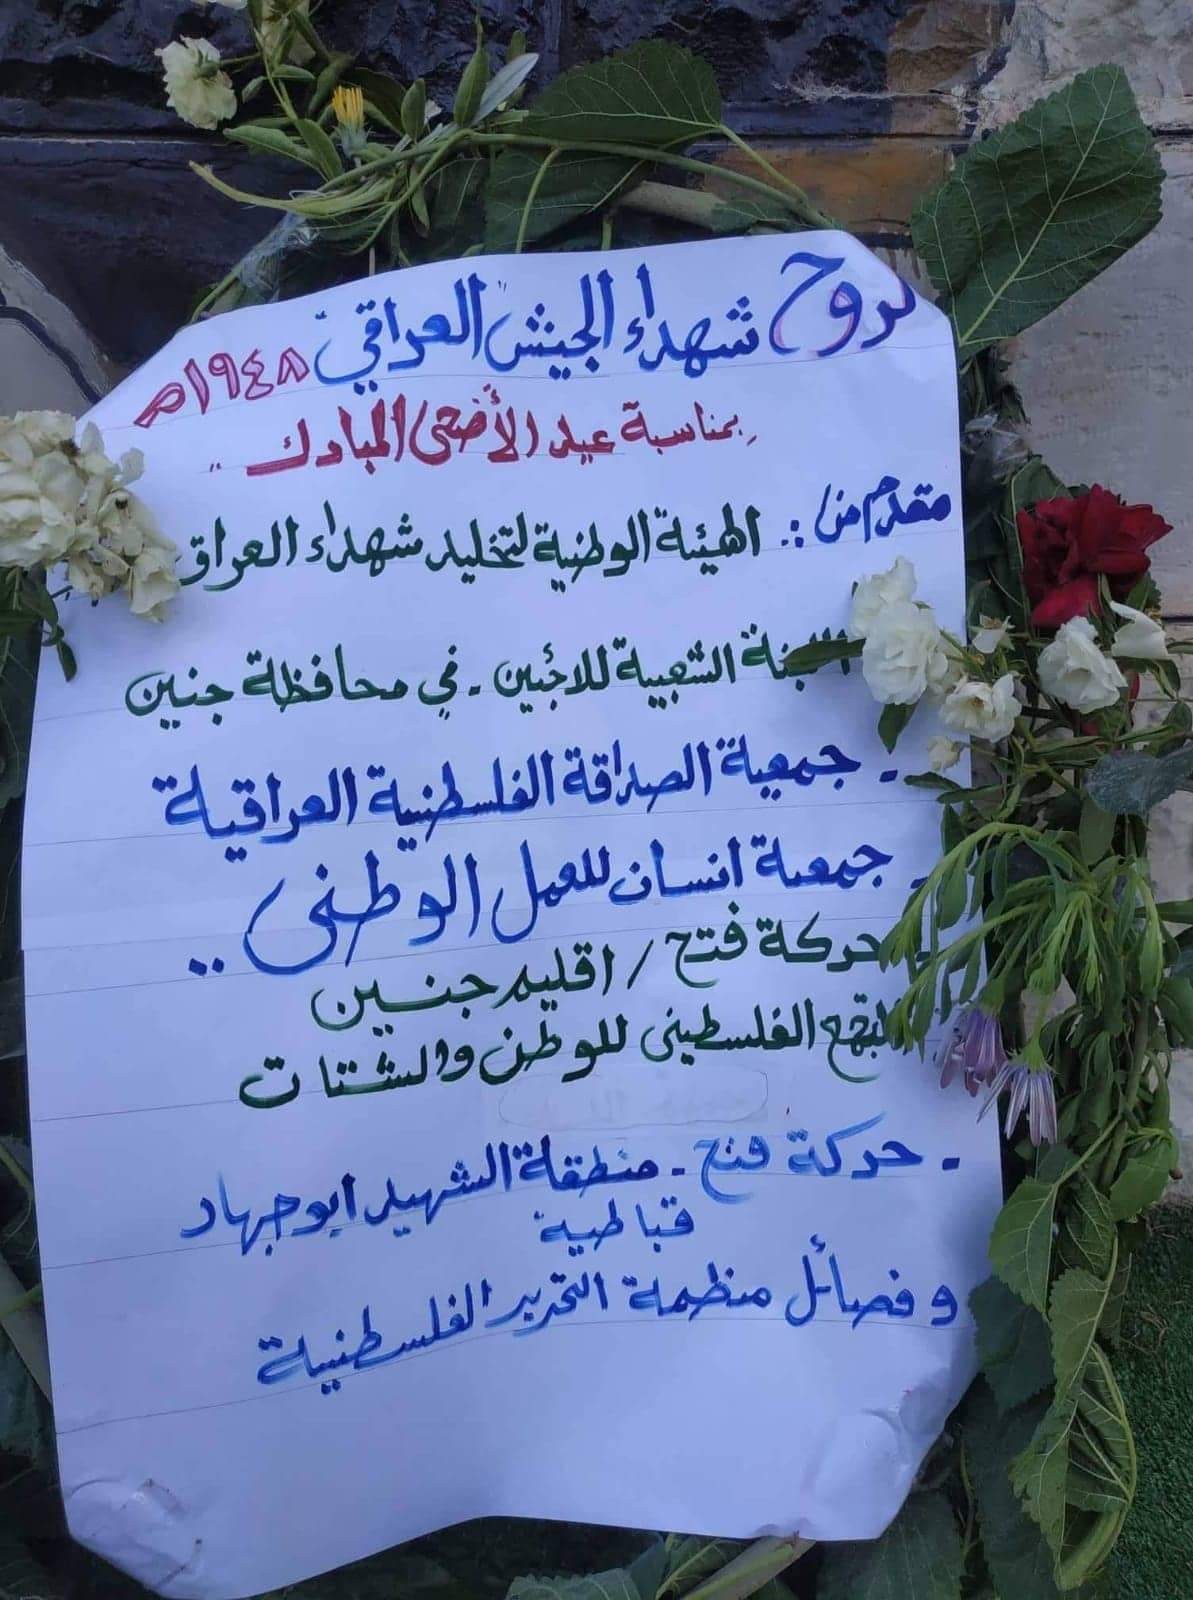 لروح شهداء الجيش العراقي ١٩٤٨م
بمناسبة عيد الأضحى المبارك
مقدم من :. الهيئة الوطنية لتخليد شهداء العراق
اللجنة الشعبية للاجئين - في محافظة جنين
- جمعية الصداقة الفلسطينية العراقية
- جمعية انسان للعمل الوطني ..
- حركة فتح / اقليم جنين
التجمع الفلسطيني للوطن والشتات
- حركة فتح - منطقة الشهيد ابو جهاد
قباطية
وفصائل منظمة التحرير الفلسطينية